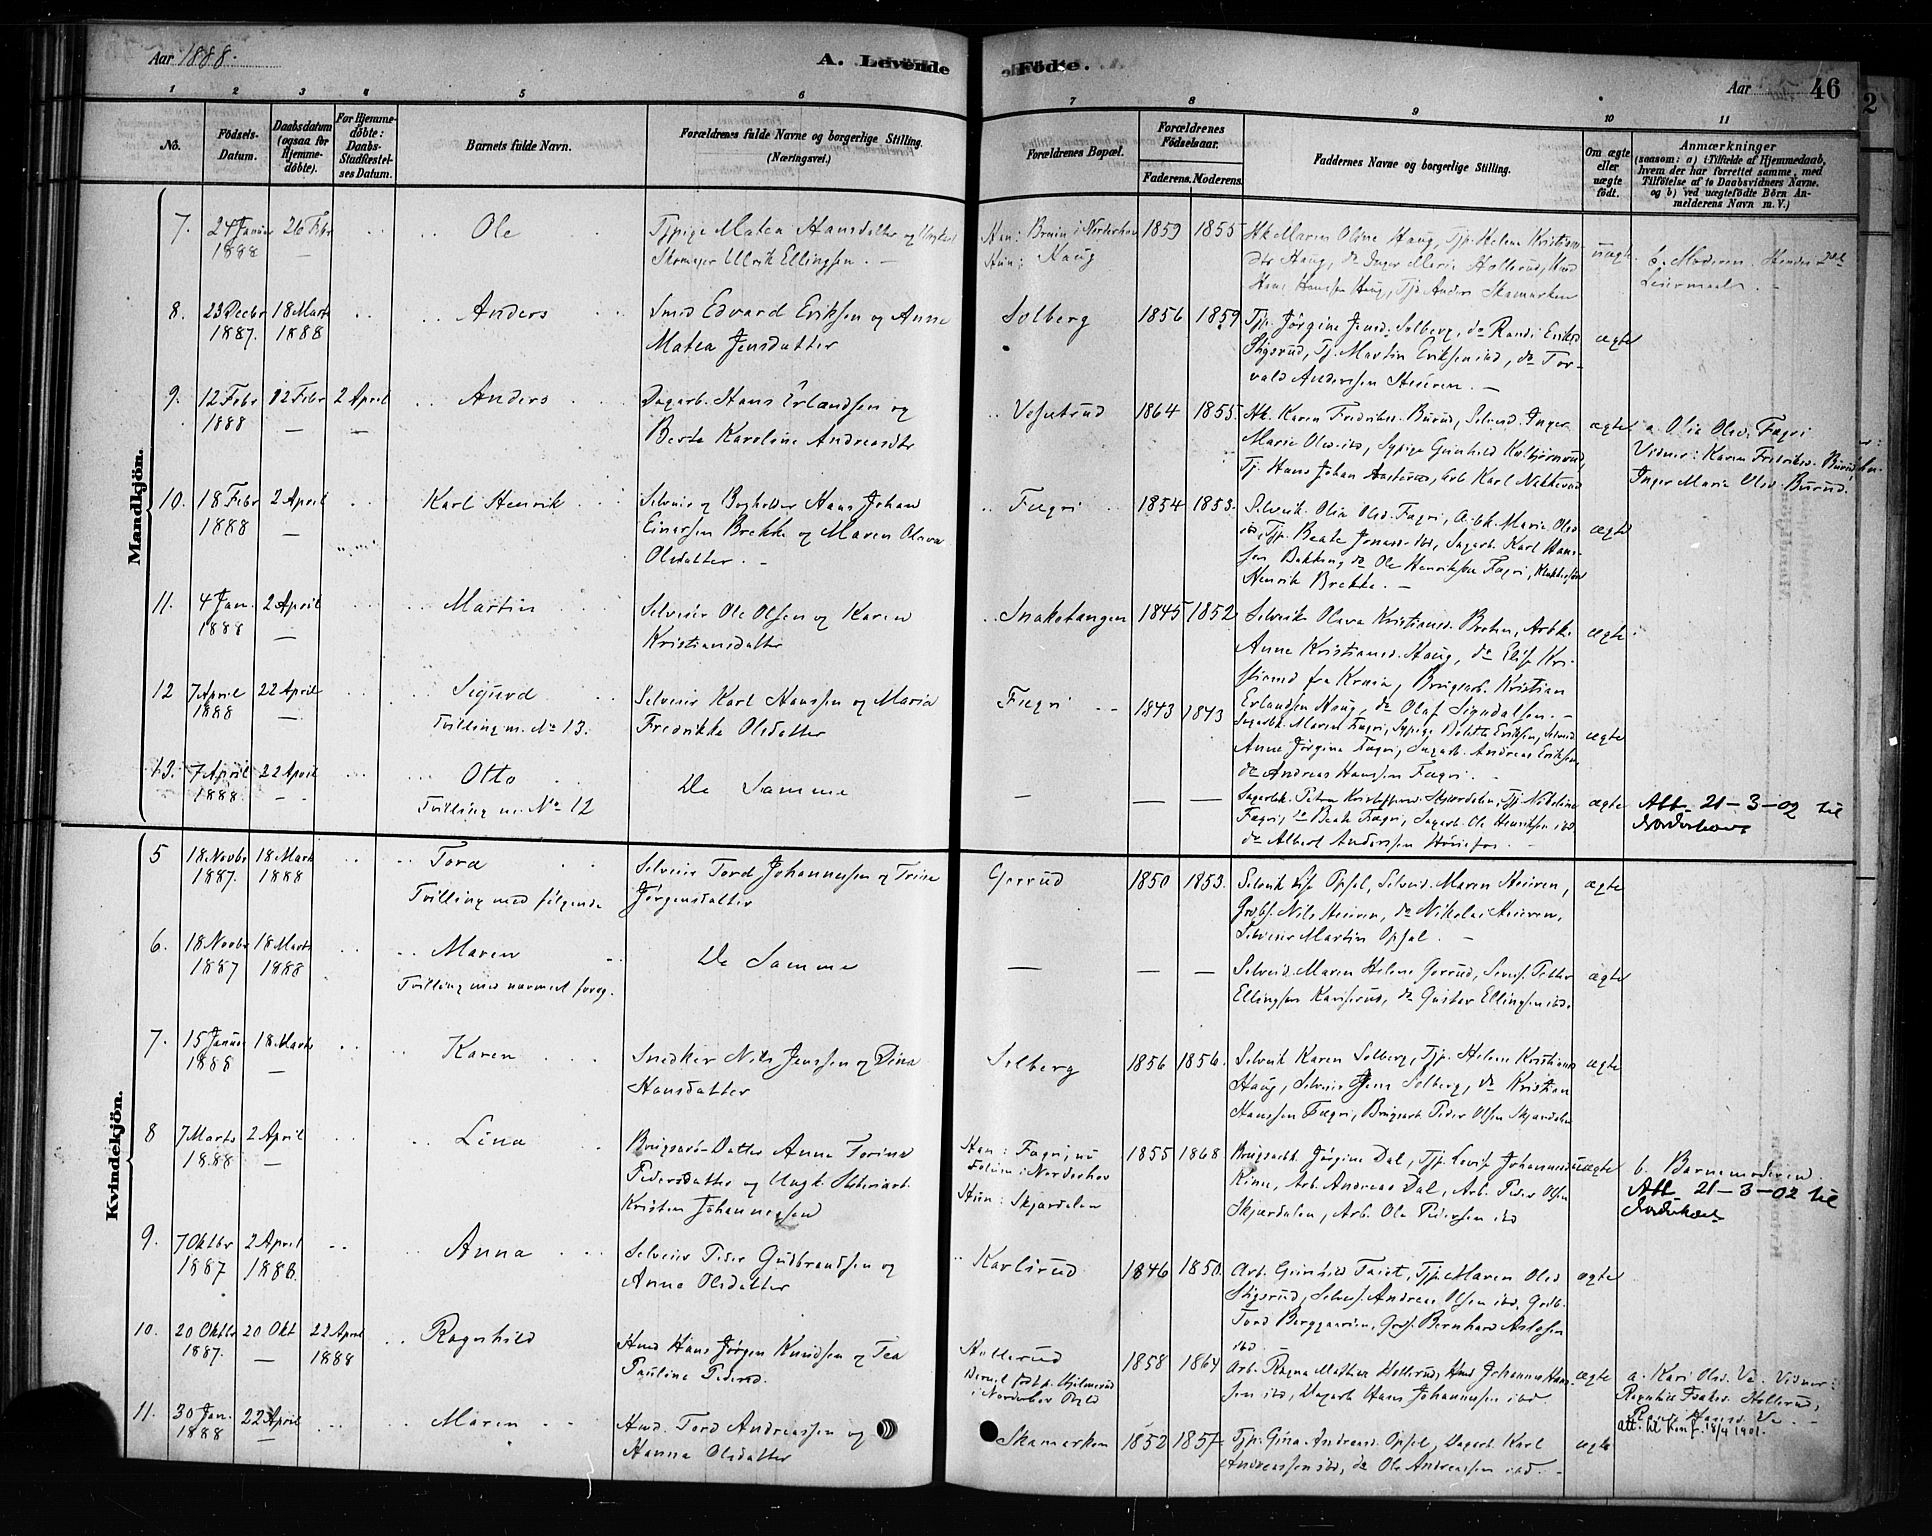 Aar 1888.
A. Levende Födte.
Aar
46
1 2 3 4 5 6 7 8 9 10 11
No.
Födsels-Datum.
Daabsdatum (ogsaa for Hjemme-döbte).
For Hjemme-döbte: Daabs-Stadfæstel-ses Datum.
Barnets fulde Navn.
Forældrenes fulde Navne og borgerlige Stilling.
(Næringsvei.)
Forældrenes Bopæl.
Forældrenes Födselsaar.
Faderens. Moderens.
Faddernes Navne og borgerlige Stilling.
Om ægte eller uægte födt.
Anmærkninger
(saasom: a) i Tilfælde af Hjemmedaab, hvem der har forrettet samme, med Tilföielse af to Daabsvidners Navne, og b) ved uægtefödte Börn Anmelderens Navn m. V.)
Mandkjön.
7. 24 Januar 1888 26 Febr Ole
Tjpige Matea Hansdatter og Ungkarl
Skomager Ulrik Ellingsen. —
Han: Bruin i Norderhov
Hun: Haug
1859 1855
Maren Oline Haug, Tjp. Helene Kristians-
dtr Haug, do Inger Marie Hollerud,
Hans Hanssen Haug, Tjg Anders Skamarken
uægte
b. Moderen. Hendes 2det
Leiermaal. —
8. 23 Decbr 1887. 18 Marts 1888 Anders
Smed Edvard Eriksen og Anne
Matea Jensdatter
Solberg 1856 1859
Tjp. Jørgine Jensd. Solberg, do Randi Eriksd
Stigsrud, Tj. Martin Eriksen ibd, do Tor-
vald Anderssen Heieren. —
ægte
9. 12 Febr 1888 12 Febr 2 April Anders
Dagarb. Hans Erlandsen og
Berte Karoline Andreasdtr
Vesetrud 1864 1855
Karen Fredriksd. Burud, Selveid. Inger
Marie Olsd. ibd, Sypige Gunhild
Tj. Hans Johan Aasterud, Arb Karl
ægte
a. Olia Olsd. Fægri
Vidner: Karen Fredriksd. Burud,
Inger Marie Olsd. Burud.
10. 18 Febr 1888 2 April Karl Henrik
Selveier og Bogholder Hans Johan
Einarsen Brekke og Maren Oleva
Olsdatter. —
Fægri 1854 1853.
Selveik. Olia Olsd. Fægri, Arbk. Maria Olsd
ibd, Tjp. Beate Jonasd. ibd, Sagarb. Karl Hans-
sen Bakken, do Ole Henriksen Fægri,
Henrik Brekke. —
ægte
11. 4 Jan. 1888 2 April Martin
Selveier Ole Olsen og Karen
Kristiansdatter
Snakstangen 1845 1852
Selveik. Olava Kristiansd. Braten, Arbk.
Anne Kristiansd. Haug, do Elise Kri-
stiansd fra, Brugsarb. Kristian
Erlandsen Haug, do Olaf Sigudalsen. —
ægte
12 7 April 1888 22 April Sigurd
Tvilling m. No 13.
Selveier Karl Hanssen og Maria
Fredrikke Olsdatter
Fægri 1843 1843
Sagarbk. Maren Fægri, Sypige Eriksen, Selveid
Anne Jørgine Fægri, Sagarb. Andreas Eriksen,
do Andreas Hanssen Fægri. —
ægte
13. 7 April 1888. 22 April Otto
Tvilling m. No 12
De Samme
— — —
Sagarbk. Petra Kristoffersd. Skjærdalen, Tjp. Nikoline
Fægri, do Beate Fægri, Sagarb. Ole Henriksen ibd,
do Albert Anderssen Hønefos. —
ægte
Att. 21-3-02 til
Norderhov
Kvindekjön.
5 18 Novbr 1887. 18 Marts 1888 Tora
Tvilling med følgende
Selveier Tord Johannessen og Trine
Jørgensdatter
Gjerrud 1850 1853.
Selveik. Lise Opsal, Selveid. Maren Heieren,
Grdbs. Nils Heieren, do Nikolai Heieren,
Selveier Martin Opsal. —
ægte
6. 18 Novbr 1887 18 Marts 1888 Maren
Tvilling med nærmest foreg.
De Samme
— — —
Selveid. Maren Helene Gerrud, Petter
Ellingsen Karlsrud, do Gustav Ellingsen ibd.
ægte
7. 15 Januar 1888 18 Marts Karen
Snedker Nils Jenssen og Dina
Hansdatter
Solberg 1856 1856.
Selveik Karen Solberg, Tjp. Helene Kristiansd
Haug, Selveier Jens Solberg, do Kristian
Hanssen Fægri, Brugsarb. Peder Olsen Skjærdalen
ægte
8 7 Marts 1888 2 April Lina
Brugsarb-Datter Anne Torine
Pedersdatter og Ungk. Sliberiarb.
Kristen Johannessen
Han: Fægri, nu
Follum i Norderhov
Hun: Skjærdalen
1855 1868
Brugsarbk. Jørgine Dal, Tjp. Lovise Johannesd
Rinn, Arb. Andreas Dal, Arb. Peder Olsen
Skjærdalen, Arb. Ole Pedersen ibd
uægte
b. Barnemoderen.
Att 21-3-02 til
Norderhov
9. 7 Oktbr 1887 2 April 1888. Anna
Selveier Peder Gudbrandsen og
Anne Olsdatter
Karlsrud 1846 1850.
Arb. Gunhild, Tjp. Maren Olsd
Stigsrud, Selves. Andreas Olsen ibd, Grdb.
Tord Berggaarden, Grds. Bernhard Aslesen
ibd. —
ægte
10. 20 Oktbr 1887. 20 Okt 22 April 1888 Ragnhild
Hmd Hans Jørgen Knudsen og Tea
Pauline Pedersd.
Hollerud
i Norderhov
1858 1864
Arb. Ragna Mathea Hollerud, Hmd Johannes Hans-
sen ibd, Dagarb Hans Johannessen ibd.
ægte
a. Kari Olsd. Ve. Vidner:
Ragnhild Hollerud,
Hansd. Ve. —
att. til Konf. 18/4 1901.
11. 30 Jan. 1888 22 April Maren
Hmd. Tord Andreassen og
Hanna Olsdatter
Skamarken 1852 1857
Tjp. Gina Andreasd. Opsal, Dagarb Karl
Andreassen ibd, do Ole Andreassen ibd. —
ægte